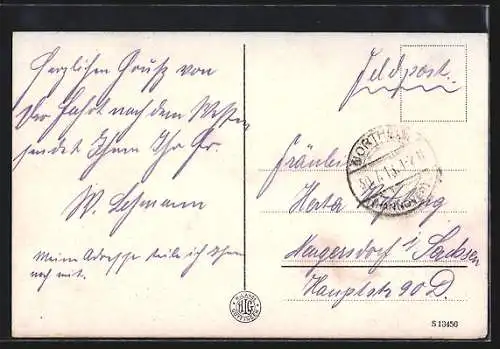 Herzlichen Gruß von
der Fahrt nach dem Westen
sendet Ihnen Ihr Fr.
W. Lehmann
Meine Adresse teile ich Ihnen
noch mit.
Feldpost.
NORTHEIM
(HANNOVER)
Fräulein
Herta
Neugersdorf i/ Sachsen
Hauptstr 90 D.
S 13456